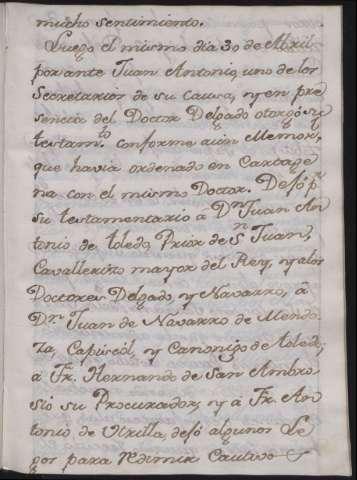 mucho sentimiento.
Luego el mismo dia 30 de Abril
por ante Juan Antonio, uno de los
Secretarios de su causa, y en pre
sencia del Doctor Delgado otorgó su
testam.to conforme aun Memori,
que havia ordenado en Cartage
na con el mismo Doctor. Dejó p.r
su testamentario â D.n Juan An
tonio de toledo, Prior de S.n Juan,
Cavallerizo mayor del Rey, y alos
Doctores Delgado, y Navarro, â
D.n Juan de Navarro de Mendo
za, Capiscol, y Canonigo de toledo;
â Fr. Hernando de San Ambro
sio su Procurador, y â Fr. An
tonio de Utrilla, dejó algunos Le
gos para redimir Cautivos